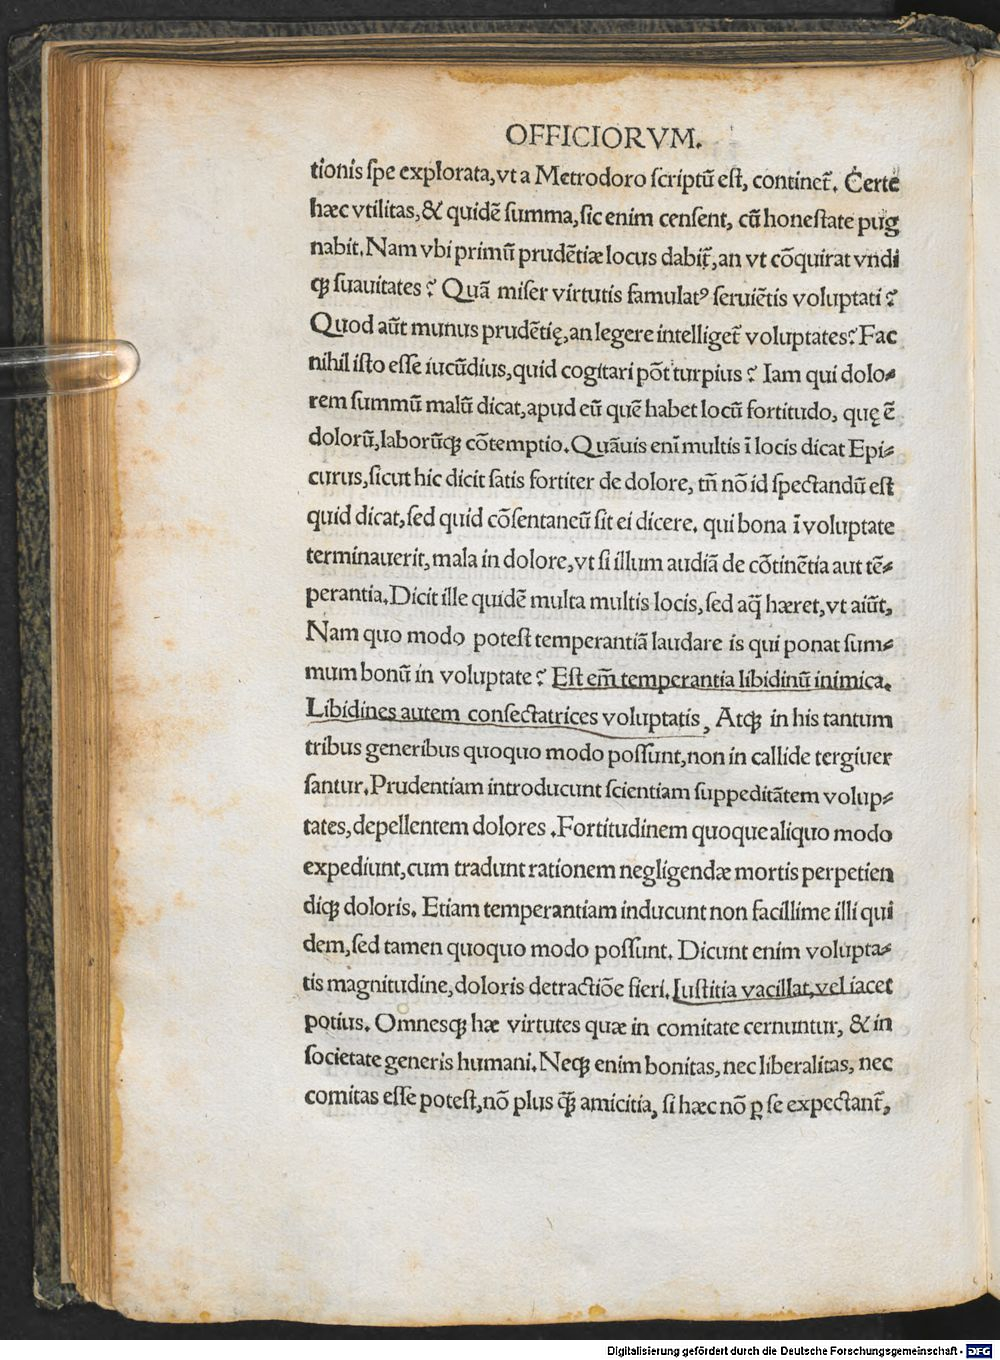 OFFICIORVM.
tionis ſpe explorata, vt a Metrodoro ſcriptū eſt, continet̃. Certe
hæc vtilitas, & quidē ſumma, ſic enim cenſent, cū honeſtate pug
nabit. Nam vbi primū prudētiæ locus dabit̃, an vt cōquirat vndi
qꝫ ſuauitates? Quā miſer virtutis famulatꝰ ſeruiētis voluptati?
Quod aūt munus prudētię, an legere intelliget̃ voluptates? Fac
nihil iſto eſſe iucūdius, quid cogitari pōt turpius? Iam qui dolo⸗
rem ſummū malū dicat, apud eū quē habet locū fortitudo, quę ē
dolorū, laborūqꝫ cōtemptio. Quāuis enī multis ī locis dicat Epi⸗
curus, ſicut hic dicit ſatis fortiter de dolore, tñ nō id ſpectandū eſt
quid dicat, ſed quid cōſentaneū ſit ei dicere. qui bona ī voluptate
terminauerit, mala in dolore, vt ſi illum audiā de cōtinētia aut tē⸗
perantia. Dicit ille quidē multa multis locis, ſed aq̄ hæret, vt aiūt,
Nam quo modo poteſt temperantiā laudare is qui ponat ſum⸗
mum bonū in voluptate? Eſt em̄ temperantia libidinū inimica.
Libidines autem conſectatrices voluptatis, Atqꝫ in his tantum
tribus generibus quoquo modo poſſunt, non in callide tergiuer
ſantur. Prudentiam introducunt ſcientiam ſuppeditātem volup⸗
tates, depellentem dolores. Fortitudinem quoque aliquo modo
expediunt, cum tradunt rationem negligendæ mortis perpetien
diqꝫ doloris. Etiam temperantiam inducunt non facillime illi qui
dem, ſed tamen quoquo modo poſſunt. Dicunt enim volupta⸗
tis magnitudine, doloris detractiōe fieri. Iuſtitia vacillat, vel iacet
potius. Omnesqꝫ hæ virtutes quæ in comitate cernuntur, & in
ſocietate generis humani. Neqꝫ enim bonitas, nec liberalitas, nec
comitas eſſe poteſt, nō plus q̄ꝫ amicitia, ſi hæc nō ꝑ ſe expectant̃,
Digitalisierung gefördert durch die Deutsche Forschungsgemeinschaft - DFG